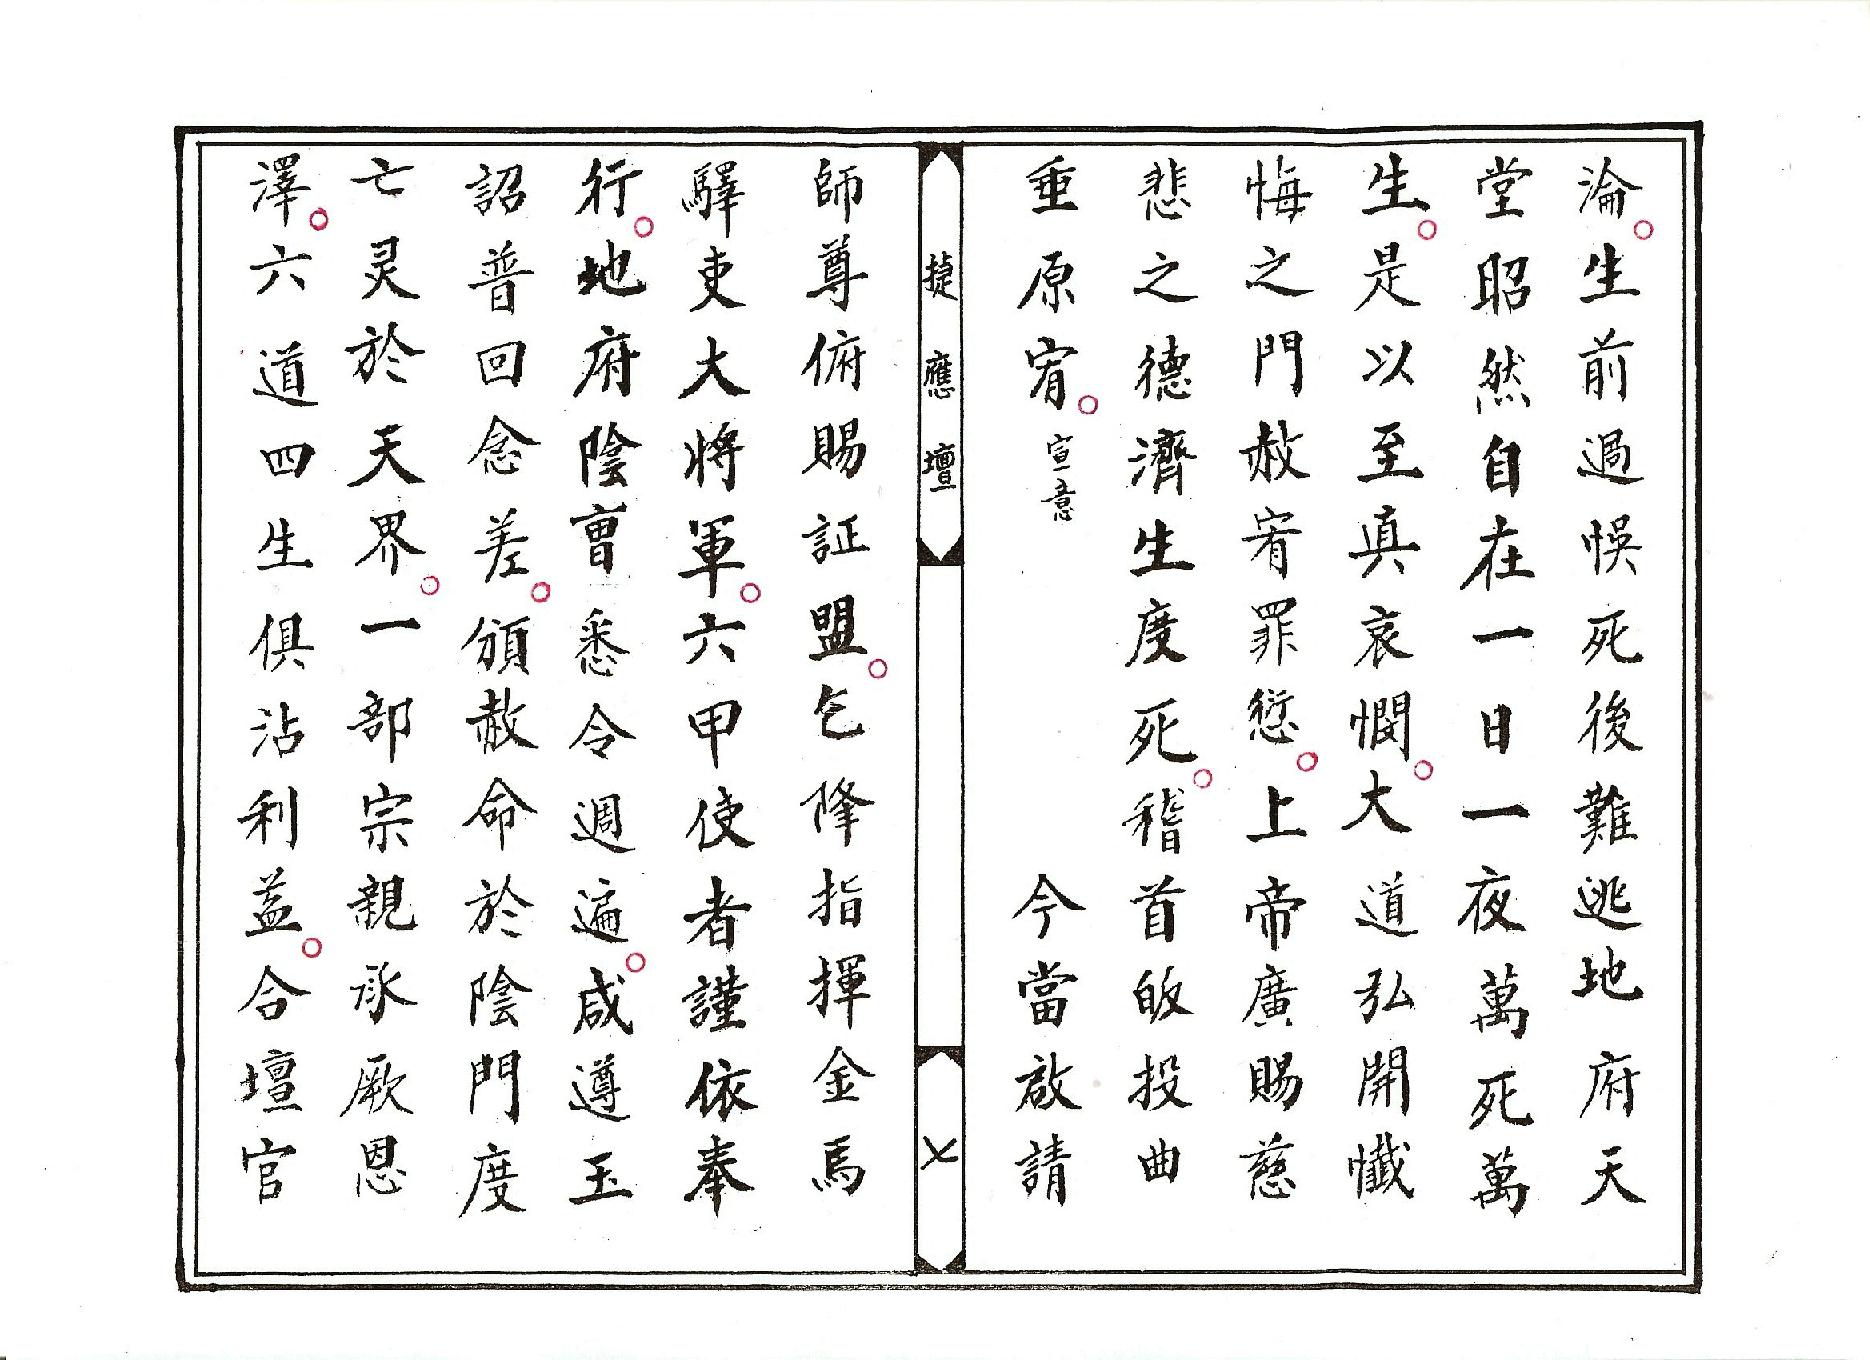 淪。生前過悞死後難逃地府天
堂昭然自在一日一夜萬死萬
生。是以至真哀憫。大道弘開懺
悔之門赦宥罪愆。上帝廣賜慈
悲之德濟生度死。稽首皈投曲
垂原宥。宣意 今當啟請
捷應壇
七
師尊俯賜証盟。乞降指揮金馬
驛吏大將軍。六甲使者謹依奉
行。地府陰曹悉令週遍。咸遵玉
詔普回念差。頒赦命於陰門度
亡灵於天界。一部宗親承厥恩
澤。六道四生俱沾利益。合壇官